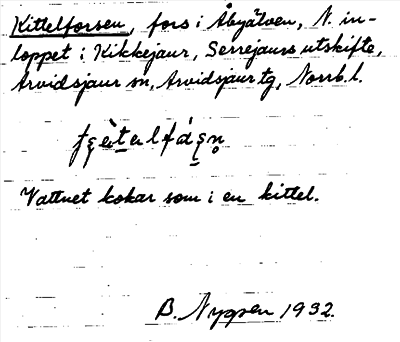 Kittelforsen, fors i Åbyälven, N. in-
loppet i Kikkejaur, Serrejaurs utskifte,
Arvidsjaur sn, Arvidsjaur tg, Norrb. l.
Vattnet kokar som i en kittel.
B. Nygren 1932.